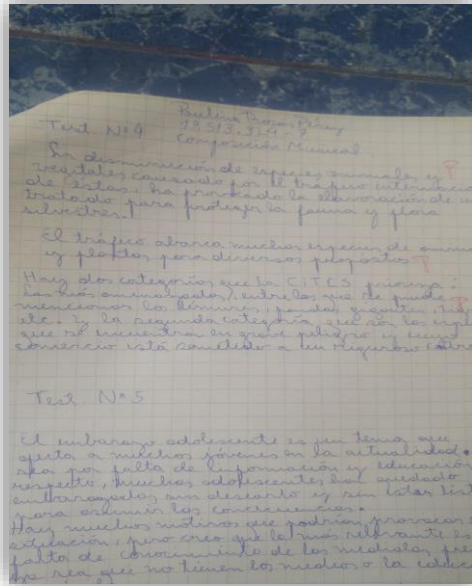 Paulina Rosas Pérez
Test Nº4
Composición Musical
La disminución de especies animales y
vegetales causado por el tráfico internacio
de éstas, ha provocado la elaboración de u
tratado para proteger la fauna y flora
silvestres.
El tráfico abarca muchas especies de
y plantas para diversos propósitos
Hay dos categorías que la CITES prioriza:
Las más amenazadas, entre los que se puede
mencionar los lémures, pandas gigantes,
etc. Y la segunda categoría que son las
que se encuentran en grave peligro y cuyo
comercio está sometido a un riguroso
Test Nº5
El embarazo adolescente es un tema que
afecta a muchos jóvenes en la actualidad.
sea por falta de información y educación
respecto, muchas adolescentes han quedado
embarazadas sin desearlo y sin estar list
para asumir las
Hay muchos motivos que podrían provocar
situación, pero creo que la más relevante es
falta de conocimiento de los
sea que no tienen los medios o la